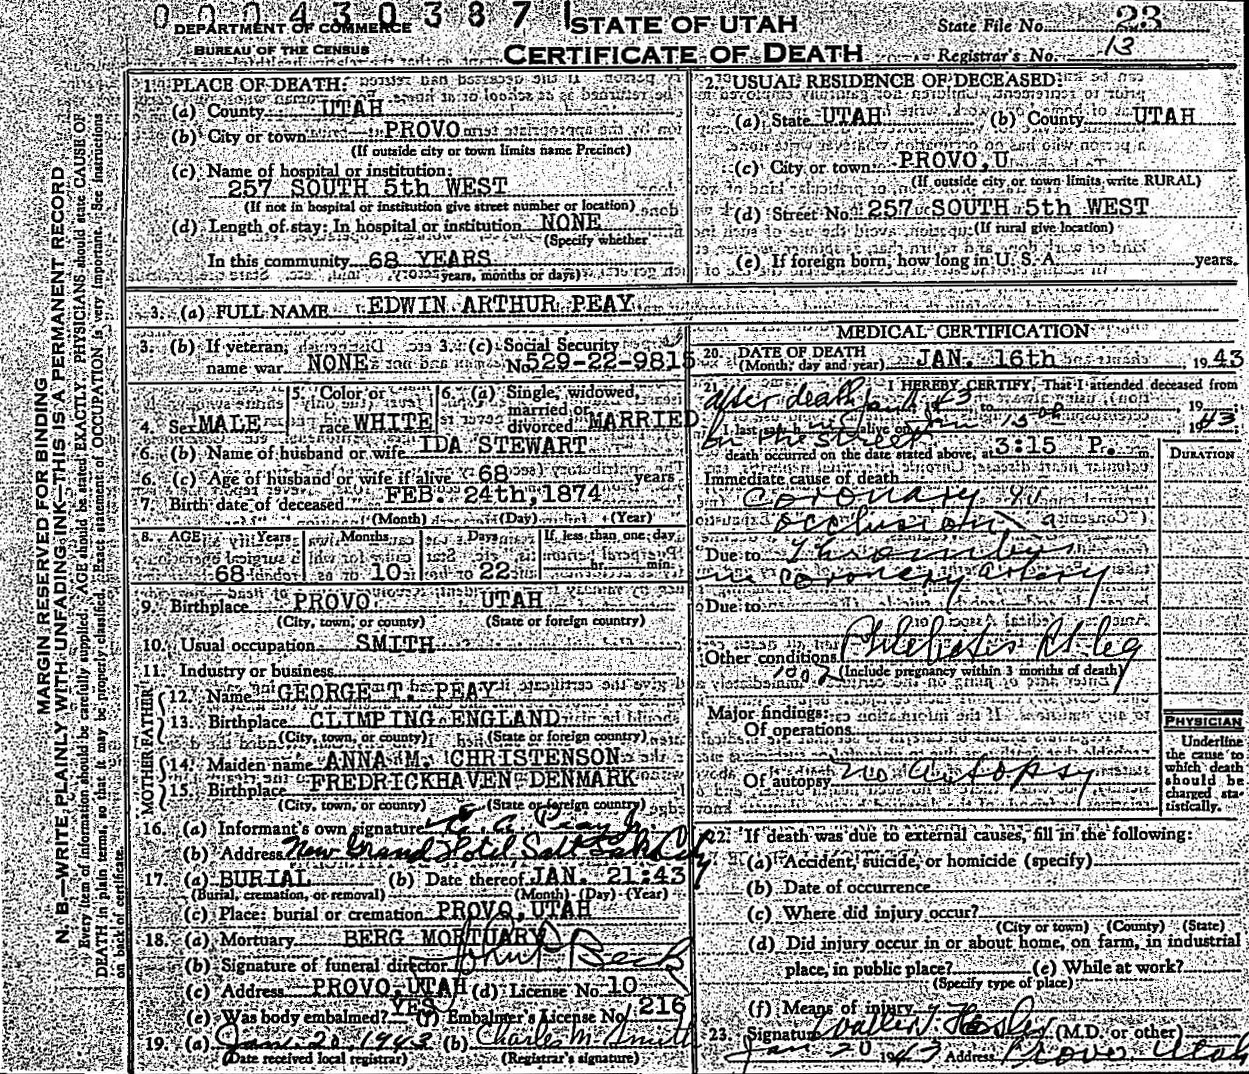 000430387
DEPARTMENT OF COMMERCE
BUREAU OF THE CENSUS
STATE OF UTAH
CERTIFICATE OF DEATH
State File No. 23
Registrar's No. 13
MARGIN RESERVED FOR BINDING
N. B.—WRITE PLAINLY WITH UNFADING INK—THIS IS A PERMANENT RECORD
Every item of information should be carefully supplied. AGE should be stated EXACTLY. PHYSICIANS should state CAUSE OF
DEATH in plain terms, so that it may be properly classified. Exact statement of OCCUPATION is very important. See instructions
on back of certificate.
1. PLACE OF DEATH:
(a) County UTAH
(b) City or town PROVO
(If outside city or town limits name Precinct)
(c) Name of hospital or institution:
257 SOUTH 5th WEST
(If not in hospital or institution give street number or location)
(d) Length of stay: In hospital or institution NONE
(Specify whether
In this community 68 YEARS
years, months or days)
2. USUAL RESIDENCE OF DECEASED:
(a) State UTAH (b) County UTAH
(c) City or town PROVO, U
(If outside city or town limits write RURAL)
(d) Street No. 257 SOUTH 5th WEST
(If rural give location)
(e) If foreign born, how long in U. S. A. years.
3. (a) FULL NAME EDWIN ARTHUR PEAY
3. (b) If veteran, name war NONE
3. (c) Social Security No. 529-22-9815
4. Sex MALE
5. Color or race WHITE
6. (a) Single, widowed, married or divorced MARRIED
6. (b) Name of husband or wife IDA STEWART
6. (c) Age of husband or wife if alive 68 years
7. Birth date of deceased FEB. 24th, 1874
(Month) (Day) (Year)
8. AGE Years Months Days If less than one day
68 10 22 hr. min.
9. Birthplace PROVO UTAH
(City, town, or county) (State or foreign country)
10. Usual occupation SMITH
11. Industry or business
FATHER
12. Name GEORGE T. PEAY
13. Birthplace CLIMPING ENGLAND
(City, town, or county) (State or foreign country)
MOTHER
14. Maiden name ANNA M. CHRISTENSON
15. Birthplace FREDRICKHAVEN DENMARK
(City, town, or county) (State or foreign country)
16. (a) Informant's own signature E. A. Peay Jr
(b) Address New Grand Hotel Salt Lake City
17. (a) BURIAL (b) Date thereof JAN. 21:43
(Burial, cremation, or removal) (Month) (Day) (Year)
(c) Place: burial or cremation PROVO, UTAH
18. (a) Mortuary BERG MORTUARY
(b) Signature of funeral director
(c) Address PROVO, UTAH (d) License No. 10
(e) Was body embalmed? YES (f) Embalmer's License No. 216
19. (a) Jan. 20, 1943 (b) Charles M. Smith
(Date received local registrar) (Registrar's signature)
MEDICAL CERTIFICATION
20. DATE OF DEATH
(Month, day and year) JAN. 16th 1943
21. I HEREBY CERTIFY, That I attended deceased from
After death Jan 43 to 19
I last saw h alive on 1943
on the street
death occurred on the date stated above, at 3:15 P. m.
DURATION
Immediate cause of death
Coronary
occlusion
Due to Thrombus
in coronary artery
Due to
Other conditions Phlebitis Rt. leg
(Include pregnancy within 3 months of death)
Major findings:
Of operations
Of autopsy no autopsy
PHYSICIAN
Underline
the cause to
which death
should be
charged sta-
tistically.
22. If death was due to external causes, fill in the following:
(a) Accident, suicide, or homicide (specify)
(b) Date of occurrence
(c) Where did injury occur?
(City or town) (County) (State)
(d) Did injury occur in or about home, on farm, in industrial
place, in public place? (e) While at work?
(Specify type of place)
(f) Means of injury
23. Signature Walter T. Hasler (M.D. or other)
Jan 20 1943 Address Provo Utah